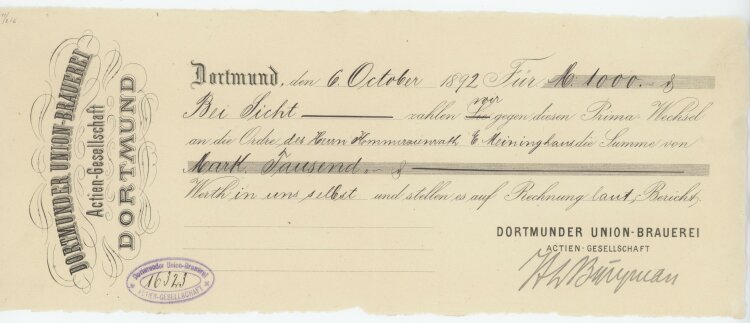 DORTMUNDER UNION-BRAUEREI
Actien-Gesellschaft
DORTMUND
Dortmund, den 6 October 1892 Für M. 1000.-
Bei Sicht zahlen Sie wir gegen diesen Prima Wechsel
an die Ordre des Herrn Kommerzienrath E. Meininghaus die Summe von
Mark, Tausend.-
Werth in uns selbst und stellen es auf Rechnung laut Bericht,
DORTMUNDER UNION-BRAUEREI
ACTIEN-GESELLSCHAFT
Dortmunder Union-Brauerei
16323
ACTIEN-GESELLSCHAFT